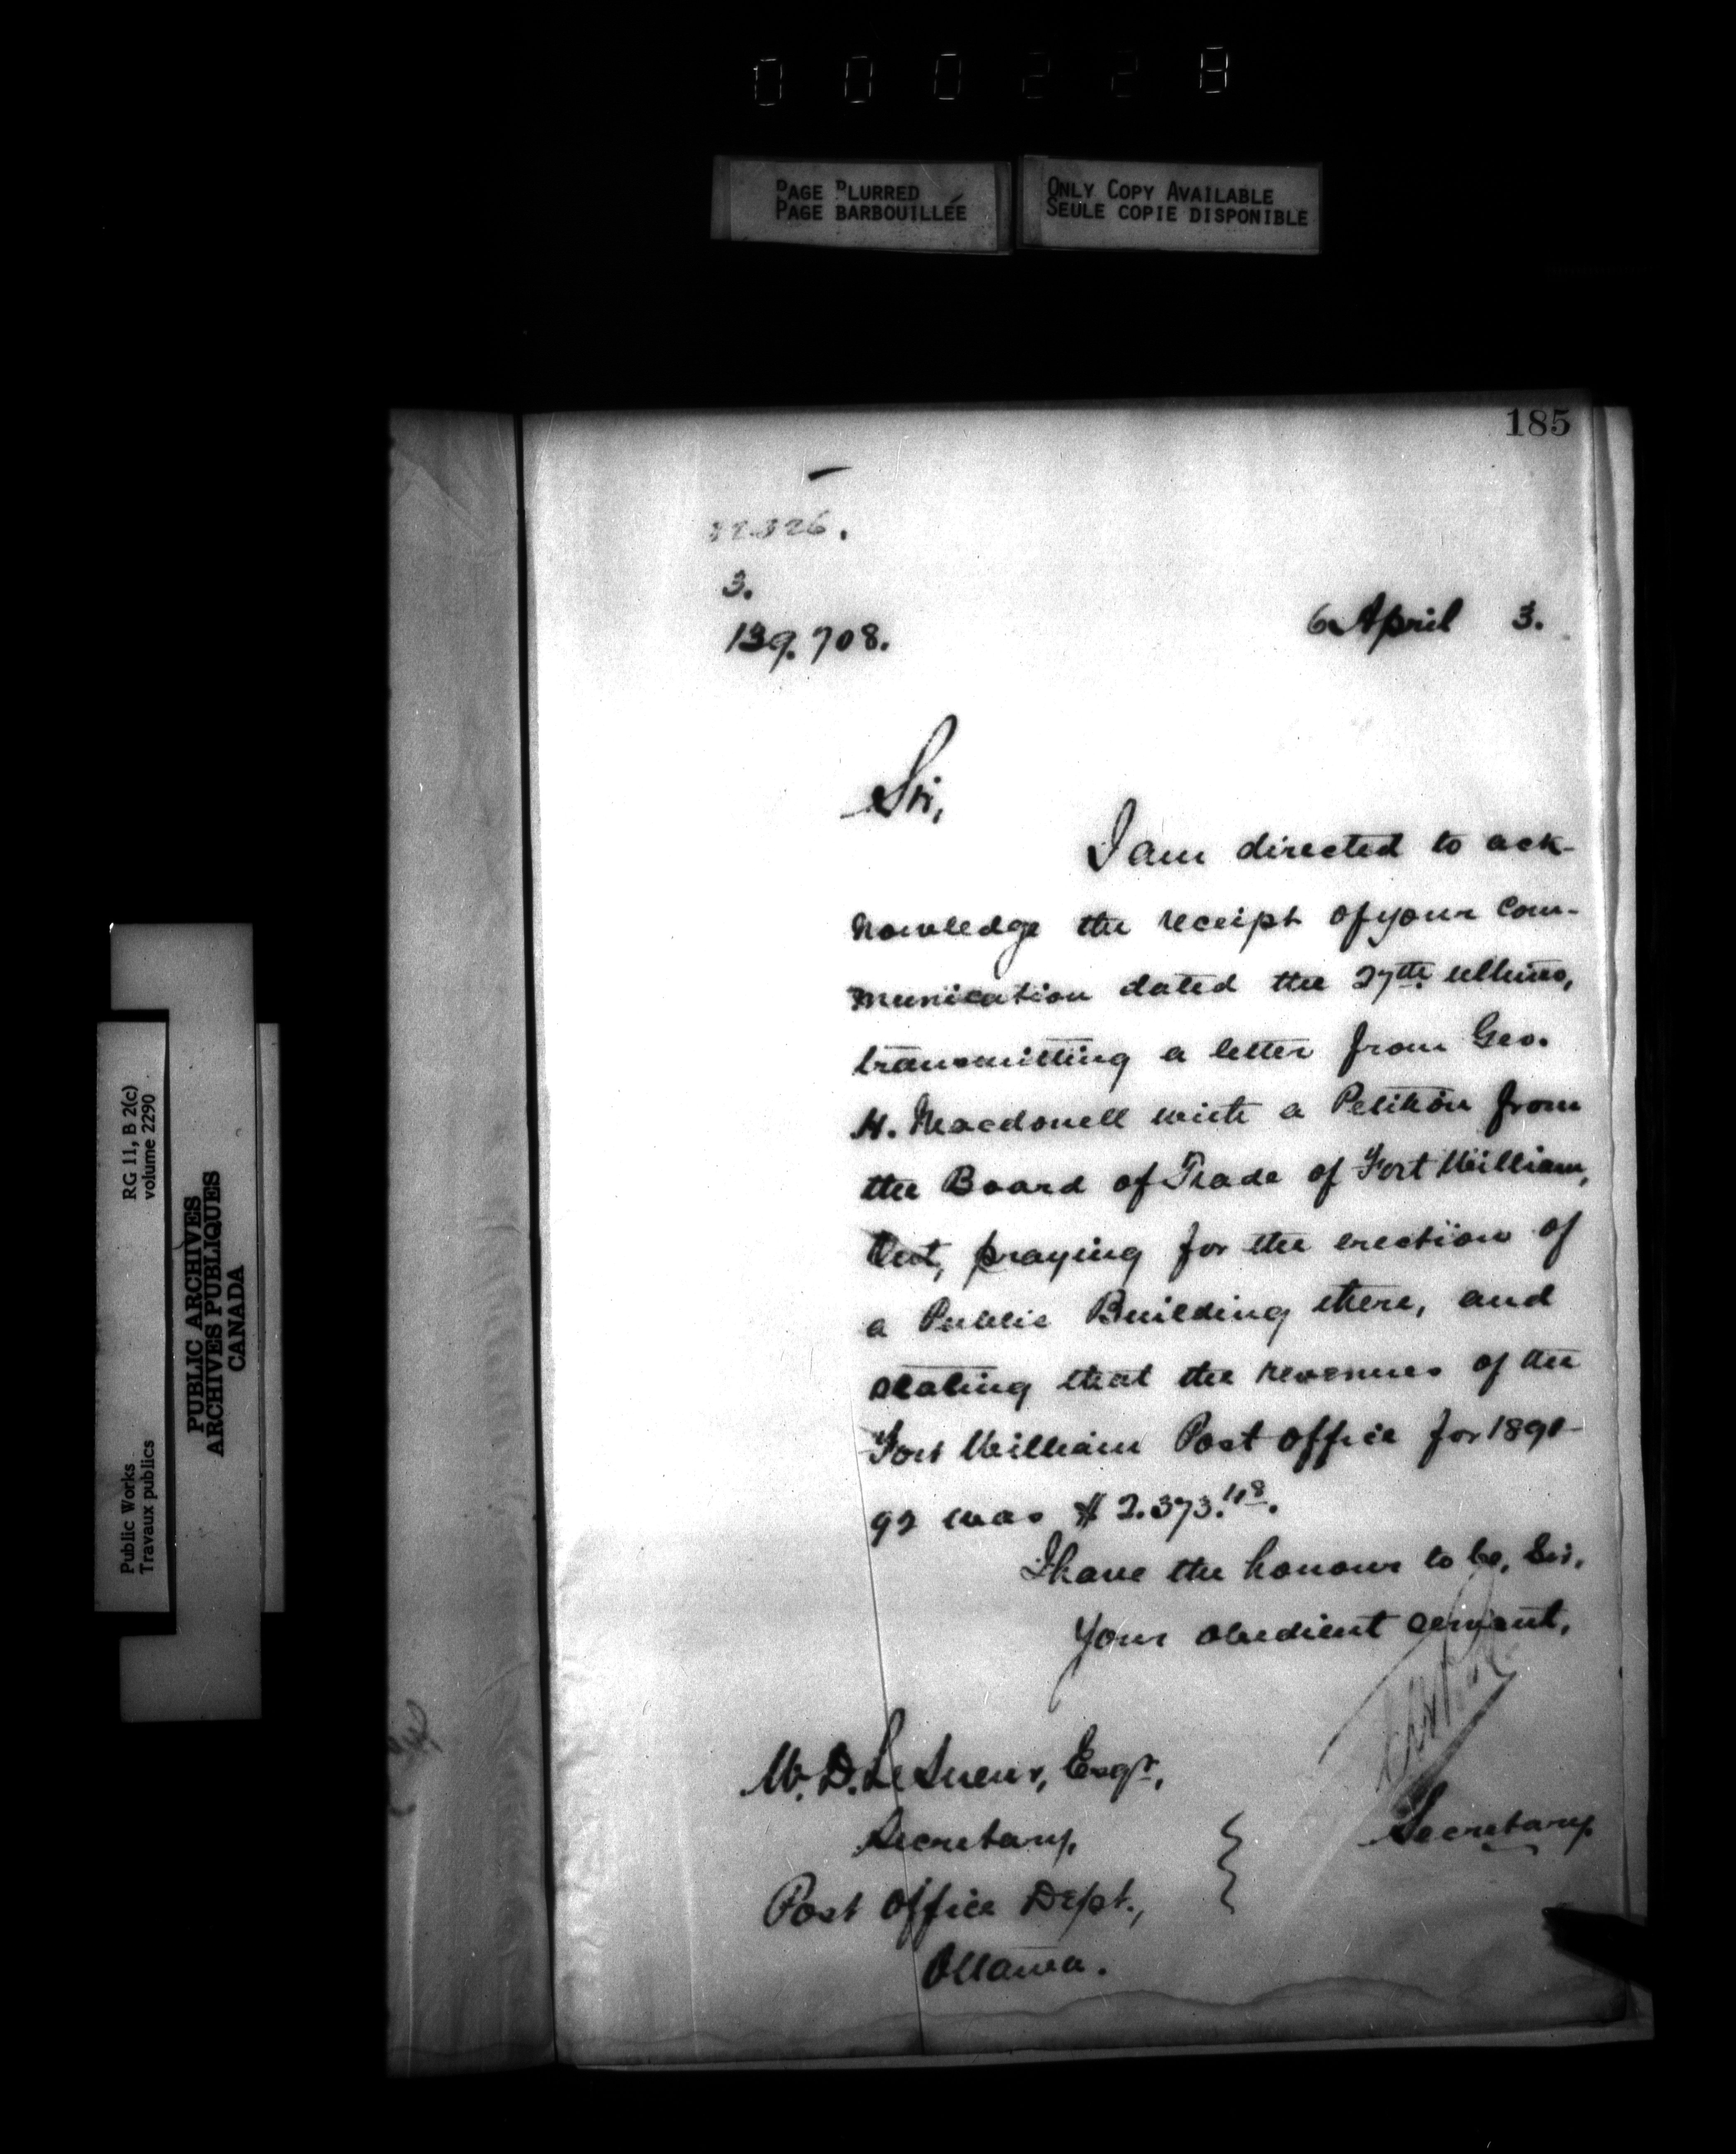 000228
PAGE BLURRED
PAGE BARBOUILLÉE
ONLY COPY AVAILABLE
SEULE COPIE DISPONIBLE
185
3.
139.708.
6 April 3.
Sir,
I am directed to ack-
nowledge the receipt of your com-
munication dated the 27th ultimo,
transmitting a letter from Geo.
H. Macdonell with a Petition from
the Board of Trade of Fort William,
Ont, praying for the erection of
a Public Building there, and
stating that the revenues of the
Fort William Post Office for 1891-
92 was $2.373.48.
I have the honour to be, Sir,
Your obedient servant,
Secretary
W. D. LeSueur, Esqr,
Secretary,
Post Office Dept.,
Ottawa.
RG 11, B 2(c)
volume 2290
Public Works
Travaux publics
PUBLIC ARCHIVES
ARCHIVES PUBLIQUES
CANADA